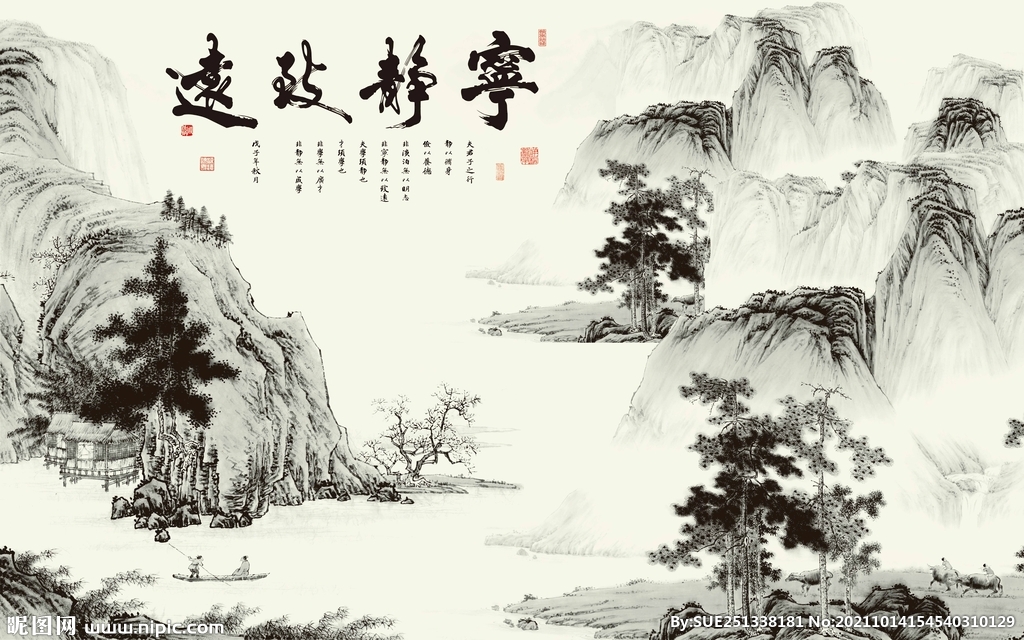 寧靜致遠
夫君子之行
靜以脩身
儉以養德
非澹泊無以明志
非寧靜無以致遠
夫學須靜也
才須學也
非學無以廣才
非靜無以成學
戊子年秋月
昵图网 www.nipic.com
By:SUE251338181 No:20211014154540310129